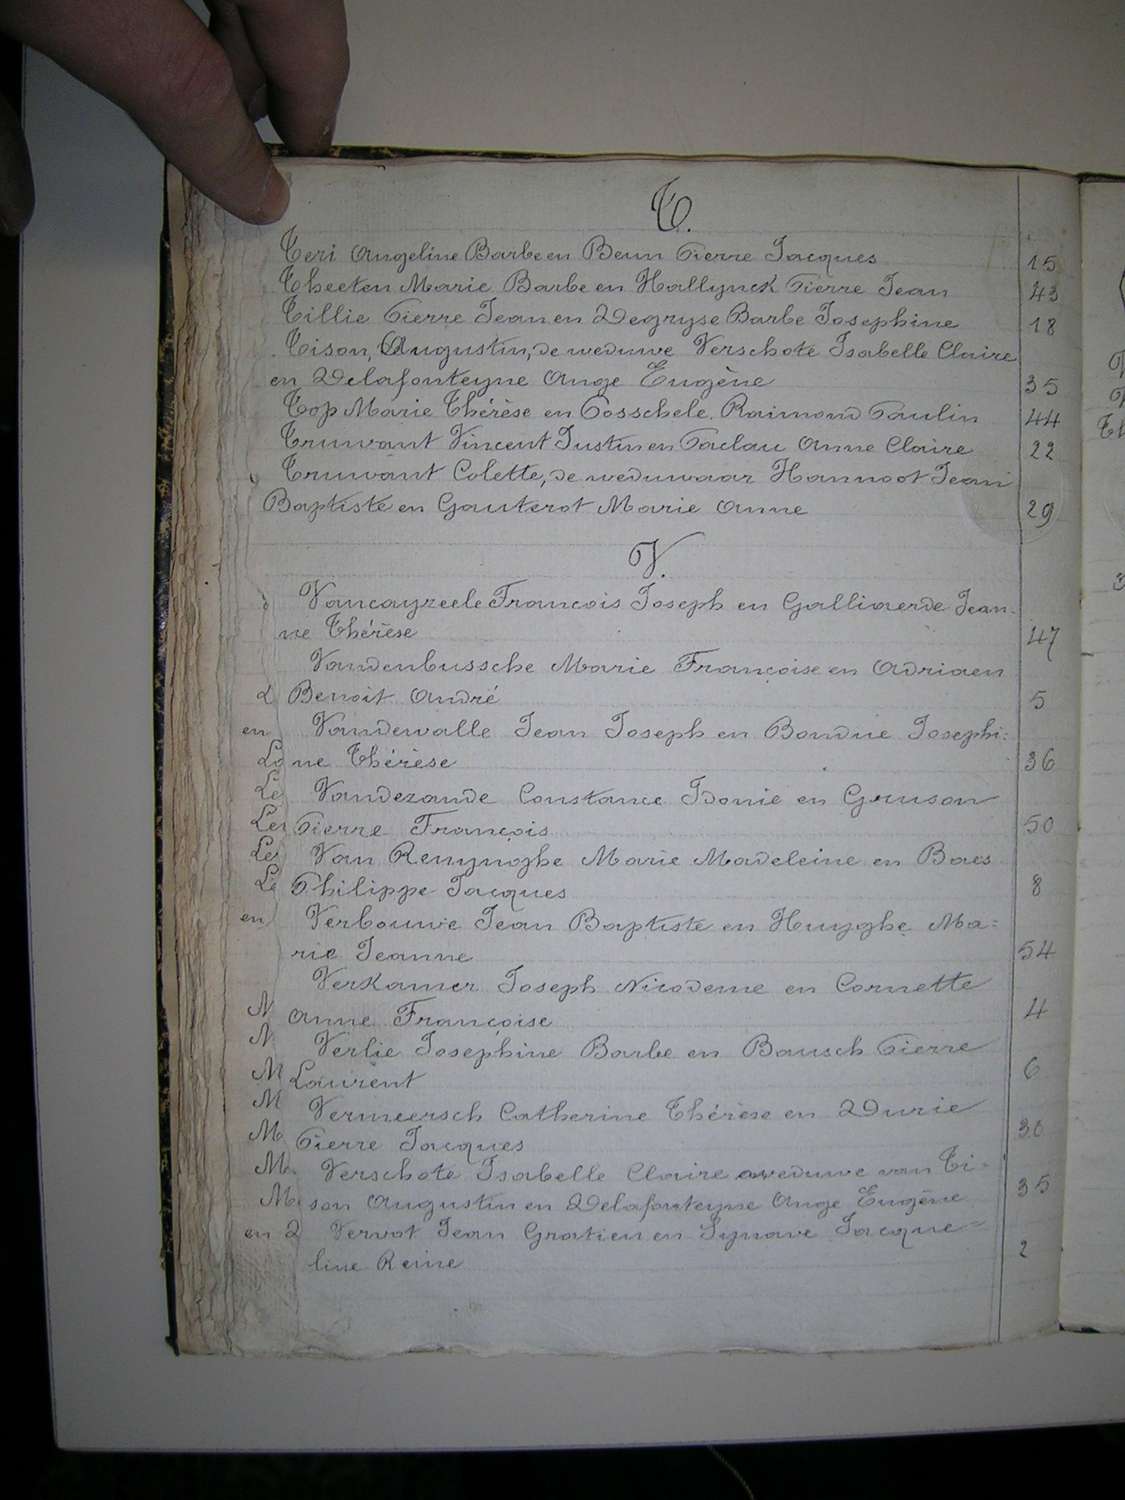 T.
Teri Angeline Barbe en Beun Pierre Jacques 15
Theeten Marie Barbe en Hallynck Pierre Jean 43
Tillie Pierre Jean en Degryse Barbe Josephine 18
Tison, Augustin, de weduwe Verschote Isabelle Claire
en Delafonteyne Ange Eugène 35
Top Marie Thérèse en Posschele Raimond Paulin 44
Truwant Vincent Justin en Paclau Anne Claire 22
Truwant Colette, de weduwaar Hannoot Jean
Baptiste en Gauterot Marie Anne 29
V.
Vancayzeele François Joseph en Galliaerde Jean-
ne Thérèse 47
Vandenbussche Marie Françoise en Adriaen
Benoit André 5
en Vandewalle Jean Joseph en Bondue Josephi-
ne Thérèse 36
Vandezande Constance Idonie en Gruson
Pierre François 50
Van Renynghe Marie Madeleine en Baes
Philippe Jacques 8
en Verbouwe Jean Baptiste en Huyghe Ma=
rie Jeanne 54
Verkamer Joseph Nicodeme en Cornette
Anne Françoise 4
Verlie Josephine Barbe en Bausch Pierre
Laurent 6
Vermeersch Catherine Thérèse en Durie
Pierre Jacques 30
Verschote Isabelle Claire weduwe van Ti-
son Augustin en Delafonteyne Ange Eugène 35
en Vervot Jean Gratien en Synave Jacque=
line Reine 2